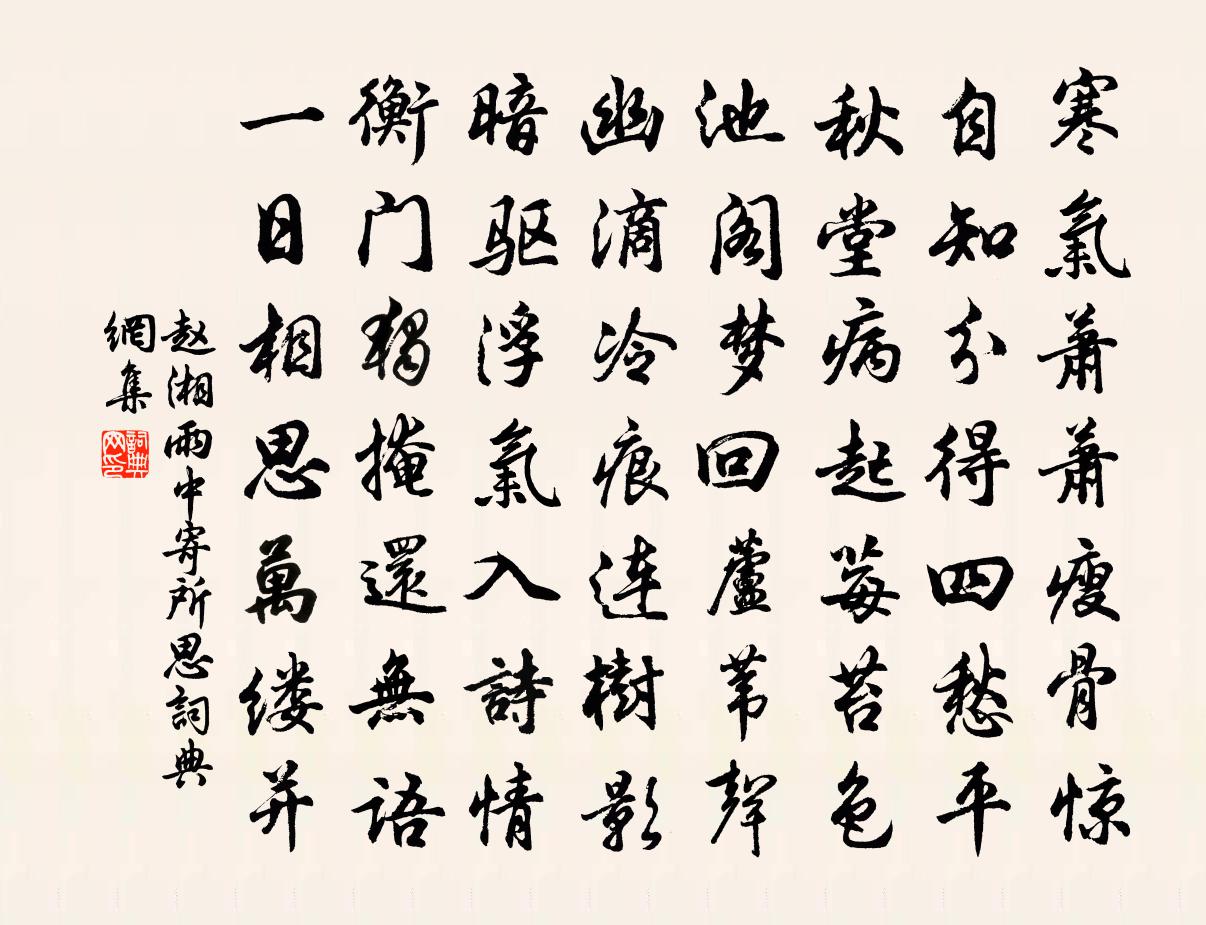 寒氣萧萧瘦骨惊
自知分得四愁平
秋堂病起莓苔色
池阁梦回蘆苇聲
幽滴冷痕连樹影
暗驱浮氣入詩情
衡门独掩還無語
一日相思萬缕并
赵湘雨中寄所思詞典
網集
詞典
网印